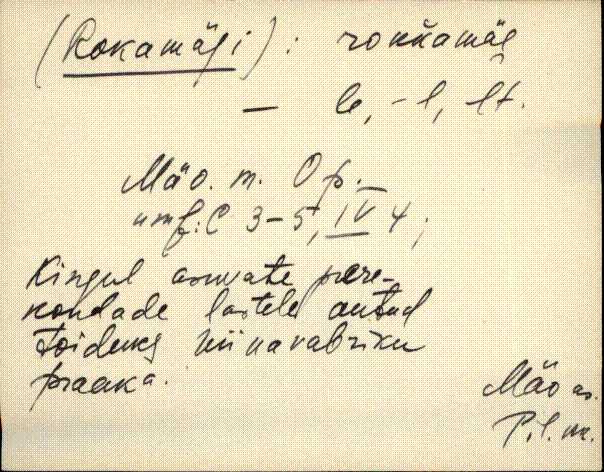 (Rokamägi): rokkamäe
— le, -l, lt.
Mäo. m. Op.
umf: C 3-5, IV 4;
Kingul asuvate pere-
kondade lastele antud
toiduks viinavabriku
praaka.
Mäo as.
P. l. m.